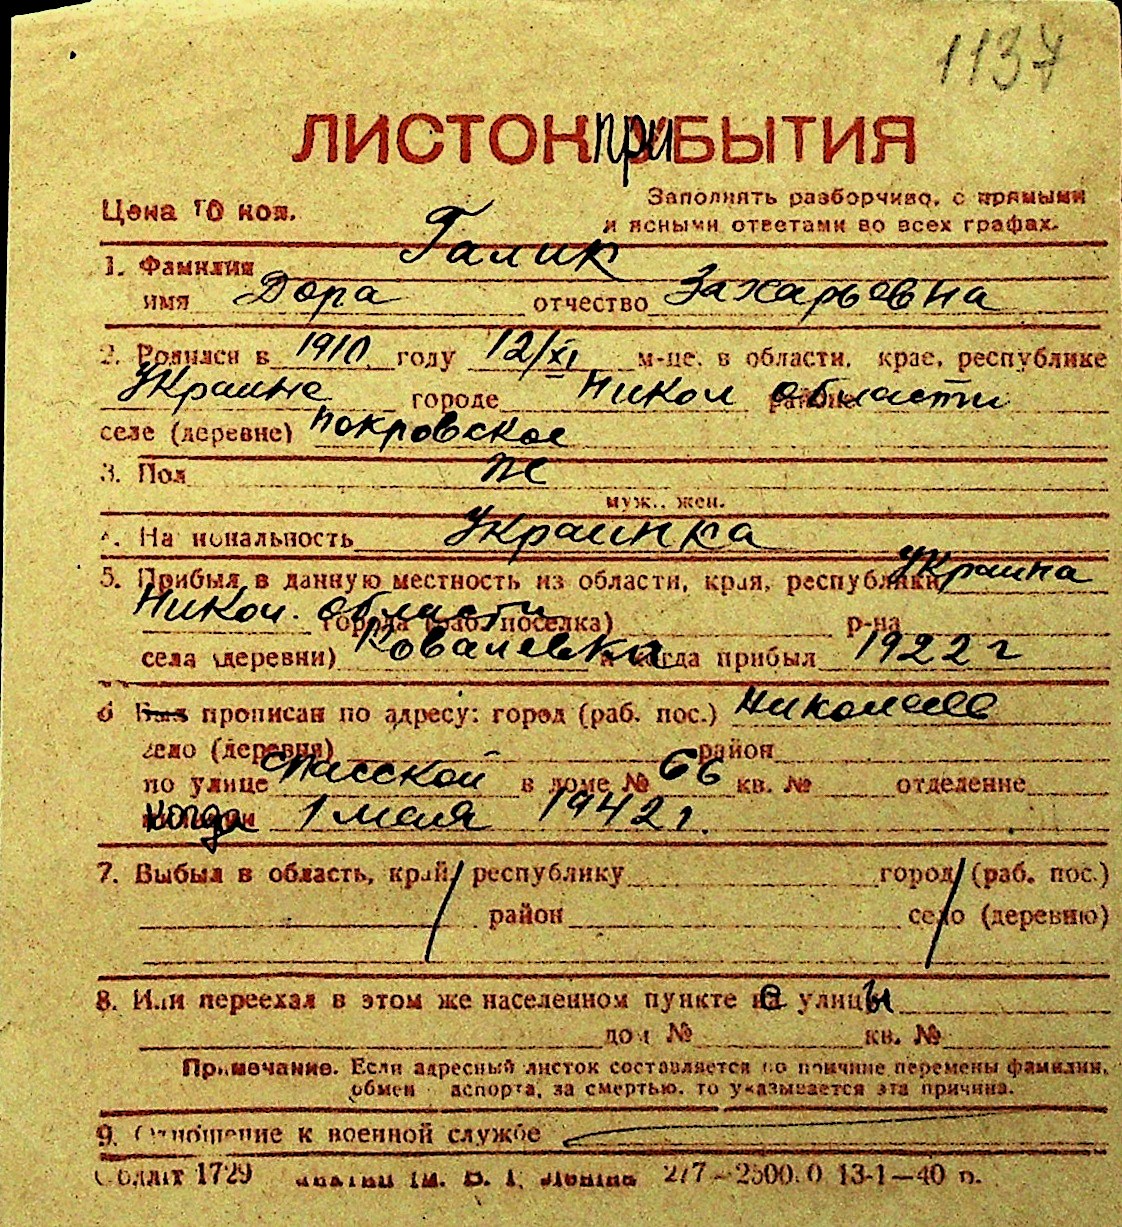 1137
ЛИСТОК ПРИБЫТИЯ
Цена 10 коп.
Заполнять разборчиво, с прямыми
и ясными ответами во всех графах.
1. Фамилия Галик
имя Дора отчество Захарьевна
2. Родился в 1910 году 12/XI м-це, в области, крае, республике
Украине городе Никол области
селе (деревне) Покровское
3. Пол ж
муж., жен.
4. Национальность Украинка
5. Прибыл в данную местность из области, края, республики Украина
Никол. области города (раб. поселка) р-на
села (деревни) Ковалевка и когда прибыл 1922 г
6 Был прописан по адресу: город (раб. пос.) Николаев
село (деревня) район
по улице Спасской в доме № 66 кв. № отделение
когда 1 мая 1942 г.
7. Выбыл в область, край, республику город (раб. пос.)
район село (деревню)
8. Или переехал в этом же населенном пункте с улицы
дом № кв. №
Примечание. Если адресный листок составляется по причине перемены фамилии,
обмен паспорта, за смертью, то указывается эта причина.
9. Отношение к военной службе
Облліт 1729 ім. В. І. Леніна 277—2500.0 13-1—40 п.